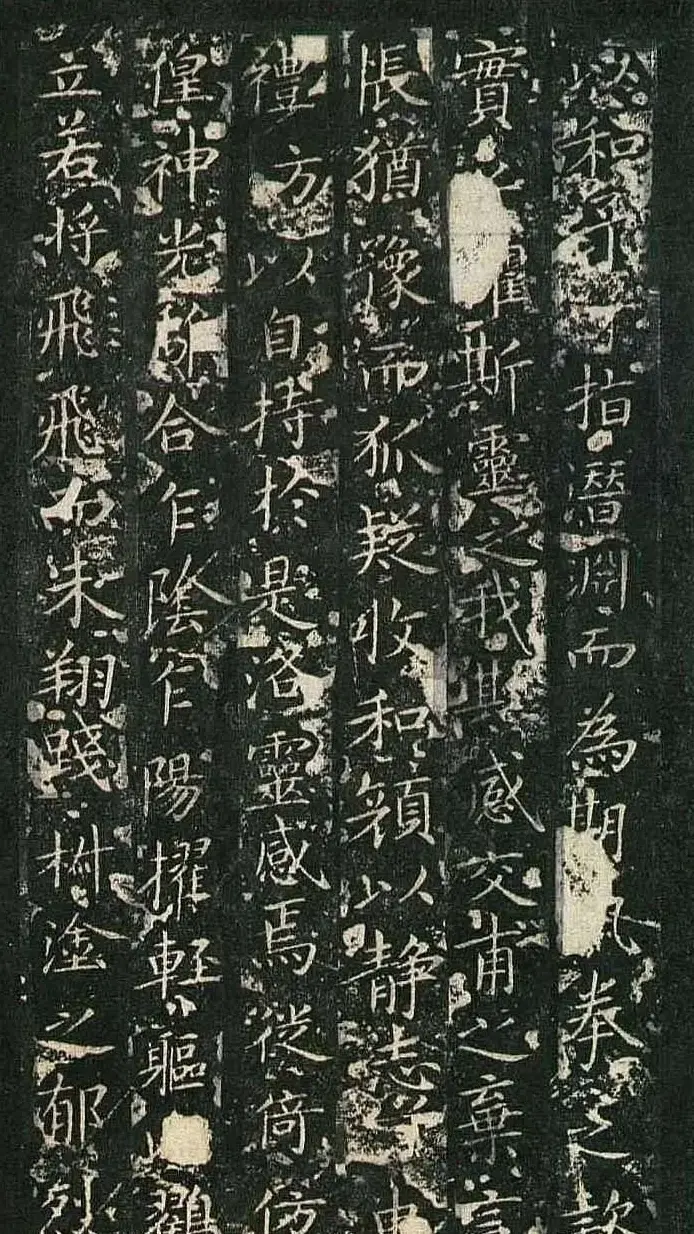 以和予兮指潛淵而為期執拳之款
實兮懼斯靈之我欺感交甫之棄言
悵猶豫而狐疑收和顏以靜志兮申
禮方以自持於是洛靈感焉徙倚仿
徨神光離合乍陰乍陽擢輕軀以鶴
立若將飛飛而未翔踐椒塗之郁烈